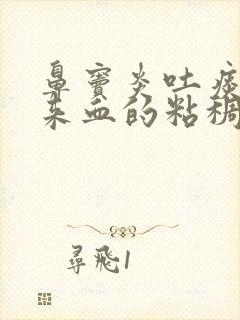 鼻窦炎吐痰
来血的粘稠
尋飛1